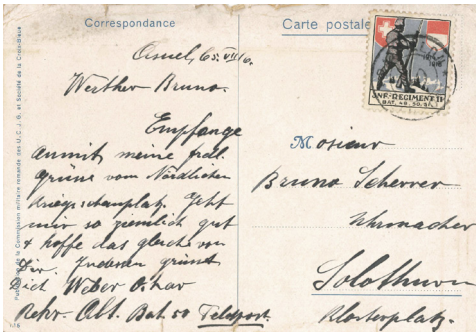 Correspondance
Carte postale
Publication de la Commission militaire romande des U. C. J. G. et Société de la Croix-Bleue
INF. REGIMENT 11
BAT. 49. 50. 51.
Asuel,
Werther Bruno.
Empfange
anmit meine frdl.
Grüsse vom Nördlichen
Kriegsschauplatz. Geht
mir so ziemlich gut
& hoffe das gleiche von
Dir. Indessen grüsst
Dich Weber Oskar
Rekr. Bat. 50 Feldpost.
Monsieur
Bruno Scherrer
Uhrmacher
Solothurn
Klosterplatz.